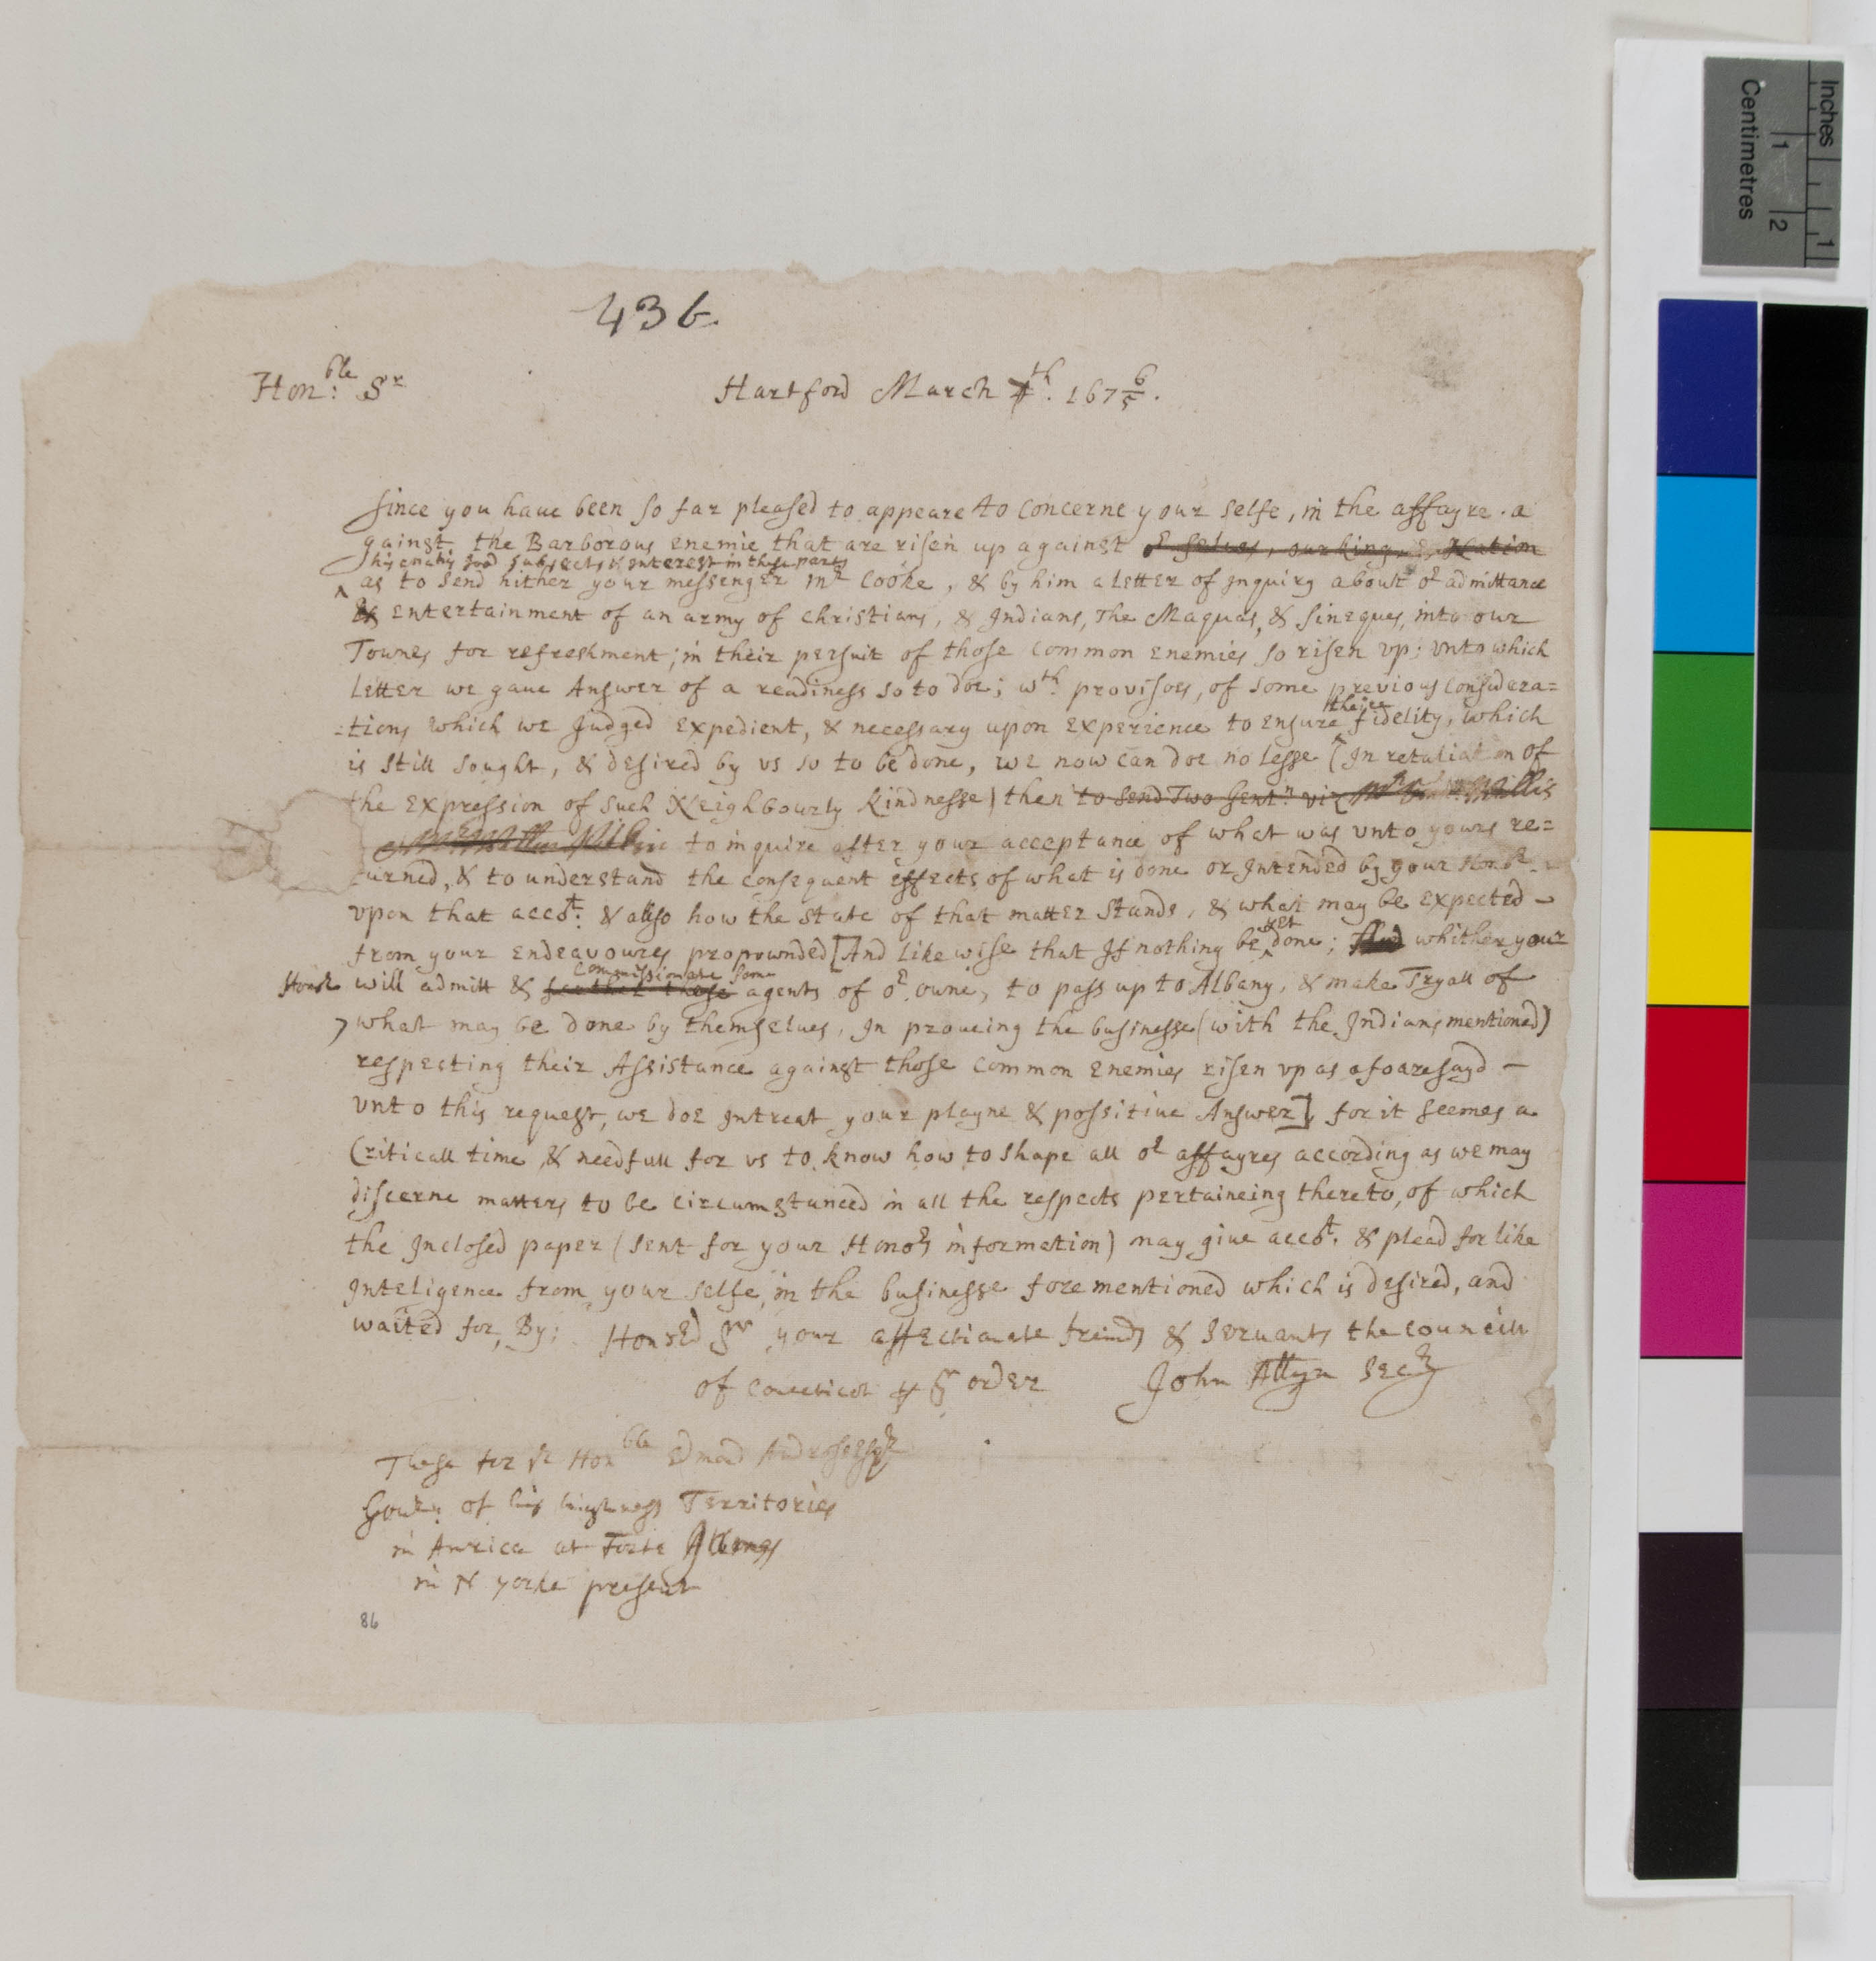 436
Hon:ble Sr Hartford March 4th. 167 6/5.
Since you haue been so far pleased to appeare to concerne your selfe, in the affayre. a
gainst the Barborous enemie that are risen up against or selues, our king, & Nation
his maties good subjects & interest in these parts
^ as to send hither your messenger mr Cooke, & by him a letter of Inquiry about or admittance
& entertainment of an army of christians, & Indians, The Maquas, & Sineques, into our
Townes for refreshment; in their persuit of those common enemies so risen vp; vnto which
letter we gaue Answer of a readiness so to doe; wth. provisoes, of some previous considera=
=tions which we Judged expedient, & necessary upon experience to ensure ^ theire fidelity, which
is still sought, & desired by vs so to be done, we now can doe no lesse (In retaliation of
the expression of such Neighbourly kindnesse) then to send Two Gentn. viz mr Willis
to inquire after your acceptance of what was vnto yours re=
turned, & to understand the consequent effects of what is done or Intended by your Honor -
vpon that accot. & allso how the state of that matter stands, & what may be expected -
from your endeavoures propownded [And likewise that If nothing be ^ yet done; And whither your
Honor will admitt & commissionate some agents of or. owne, to pass up to Albany, & make Tryall of
what may be done by themselues, In proueing the businesse (with the Indians mentioned)
respecting their Assistance against those common enemies risen vp as afoaresayd -
vnto this request, we doe Intreat your playne & possitiue Answer] for it seemes a
Criticall time & needfull for vs to know how to shape all or affayres according as we may
discerne matters to be circumstanced in all the respects pertaineing thereto, of which
the Inclosed paper (sent for your Honors information) may giue accot. & plead for like
Inteligence from your selfe, in the businesse forementioned which is desired, and
waited for, By; Honord Sr your affectionate freinds & Seruants the councill
of Conecticot pr order John Allyn Secry
These for ye Honble Edmond Andross Esqr
Gouern: of his highness Territories
in America at Forte Albany
in N yorke present
86
Inches
Centimetres
1
2
1